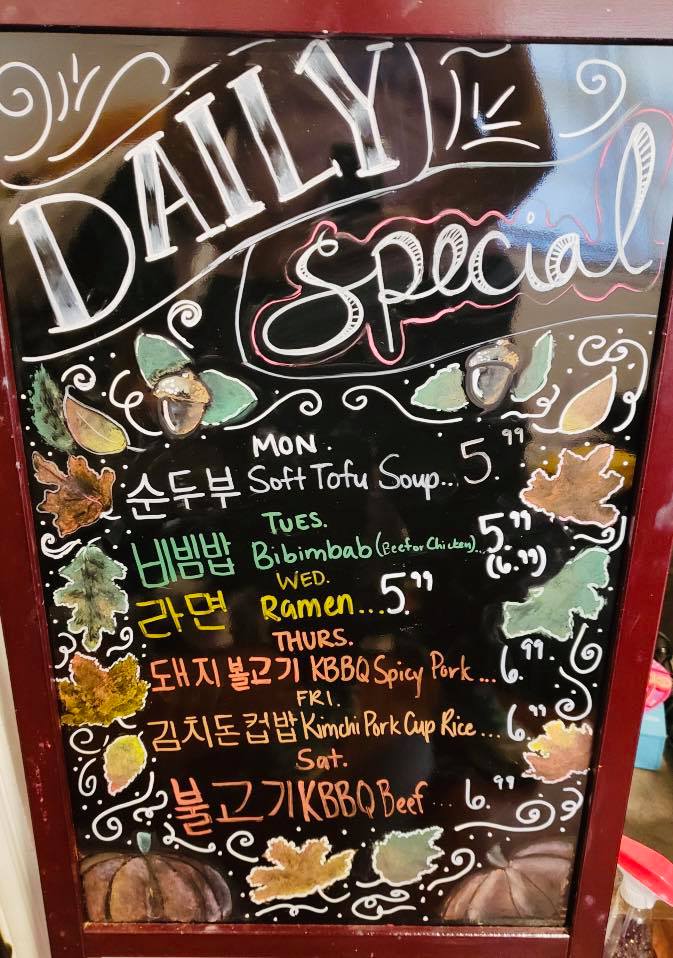 DAILY
Special
MON.
순두부 Soft Tofu Soup.. 5.99
TUES.
비빔밥 Bibimbab (Beef or Chicken)... 5.99
(6.99)
WED.
라면 Ramen...5.99
THURS.
돼지불고기 KBBQ Spicy Pork... 6.99
FRI.
김치돈컵밥 Kimchi Pork Cup Rice... 6.99
Sat.
불고기 KBBQ Beef ... 6.99